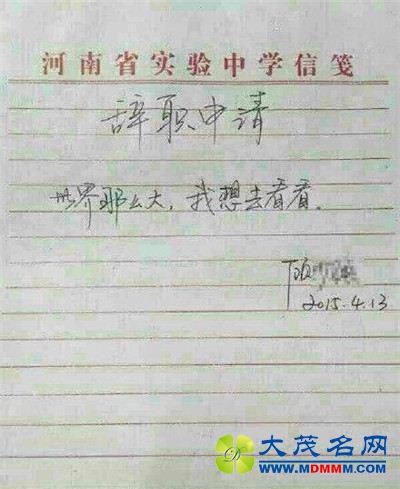 河南省实验中学信笺
辞职申请
世界那么大，我想去看看。
顾
2015.4.13
大茂名网
www.DMMMM.com